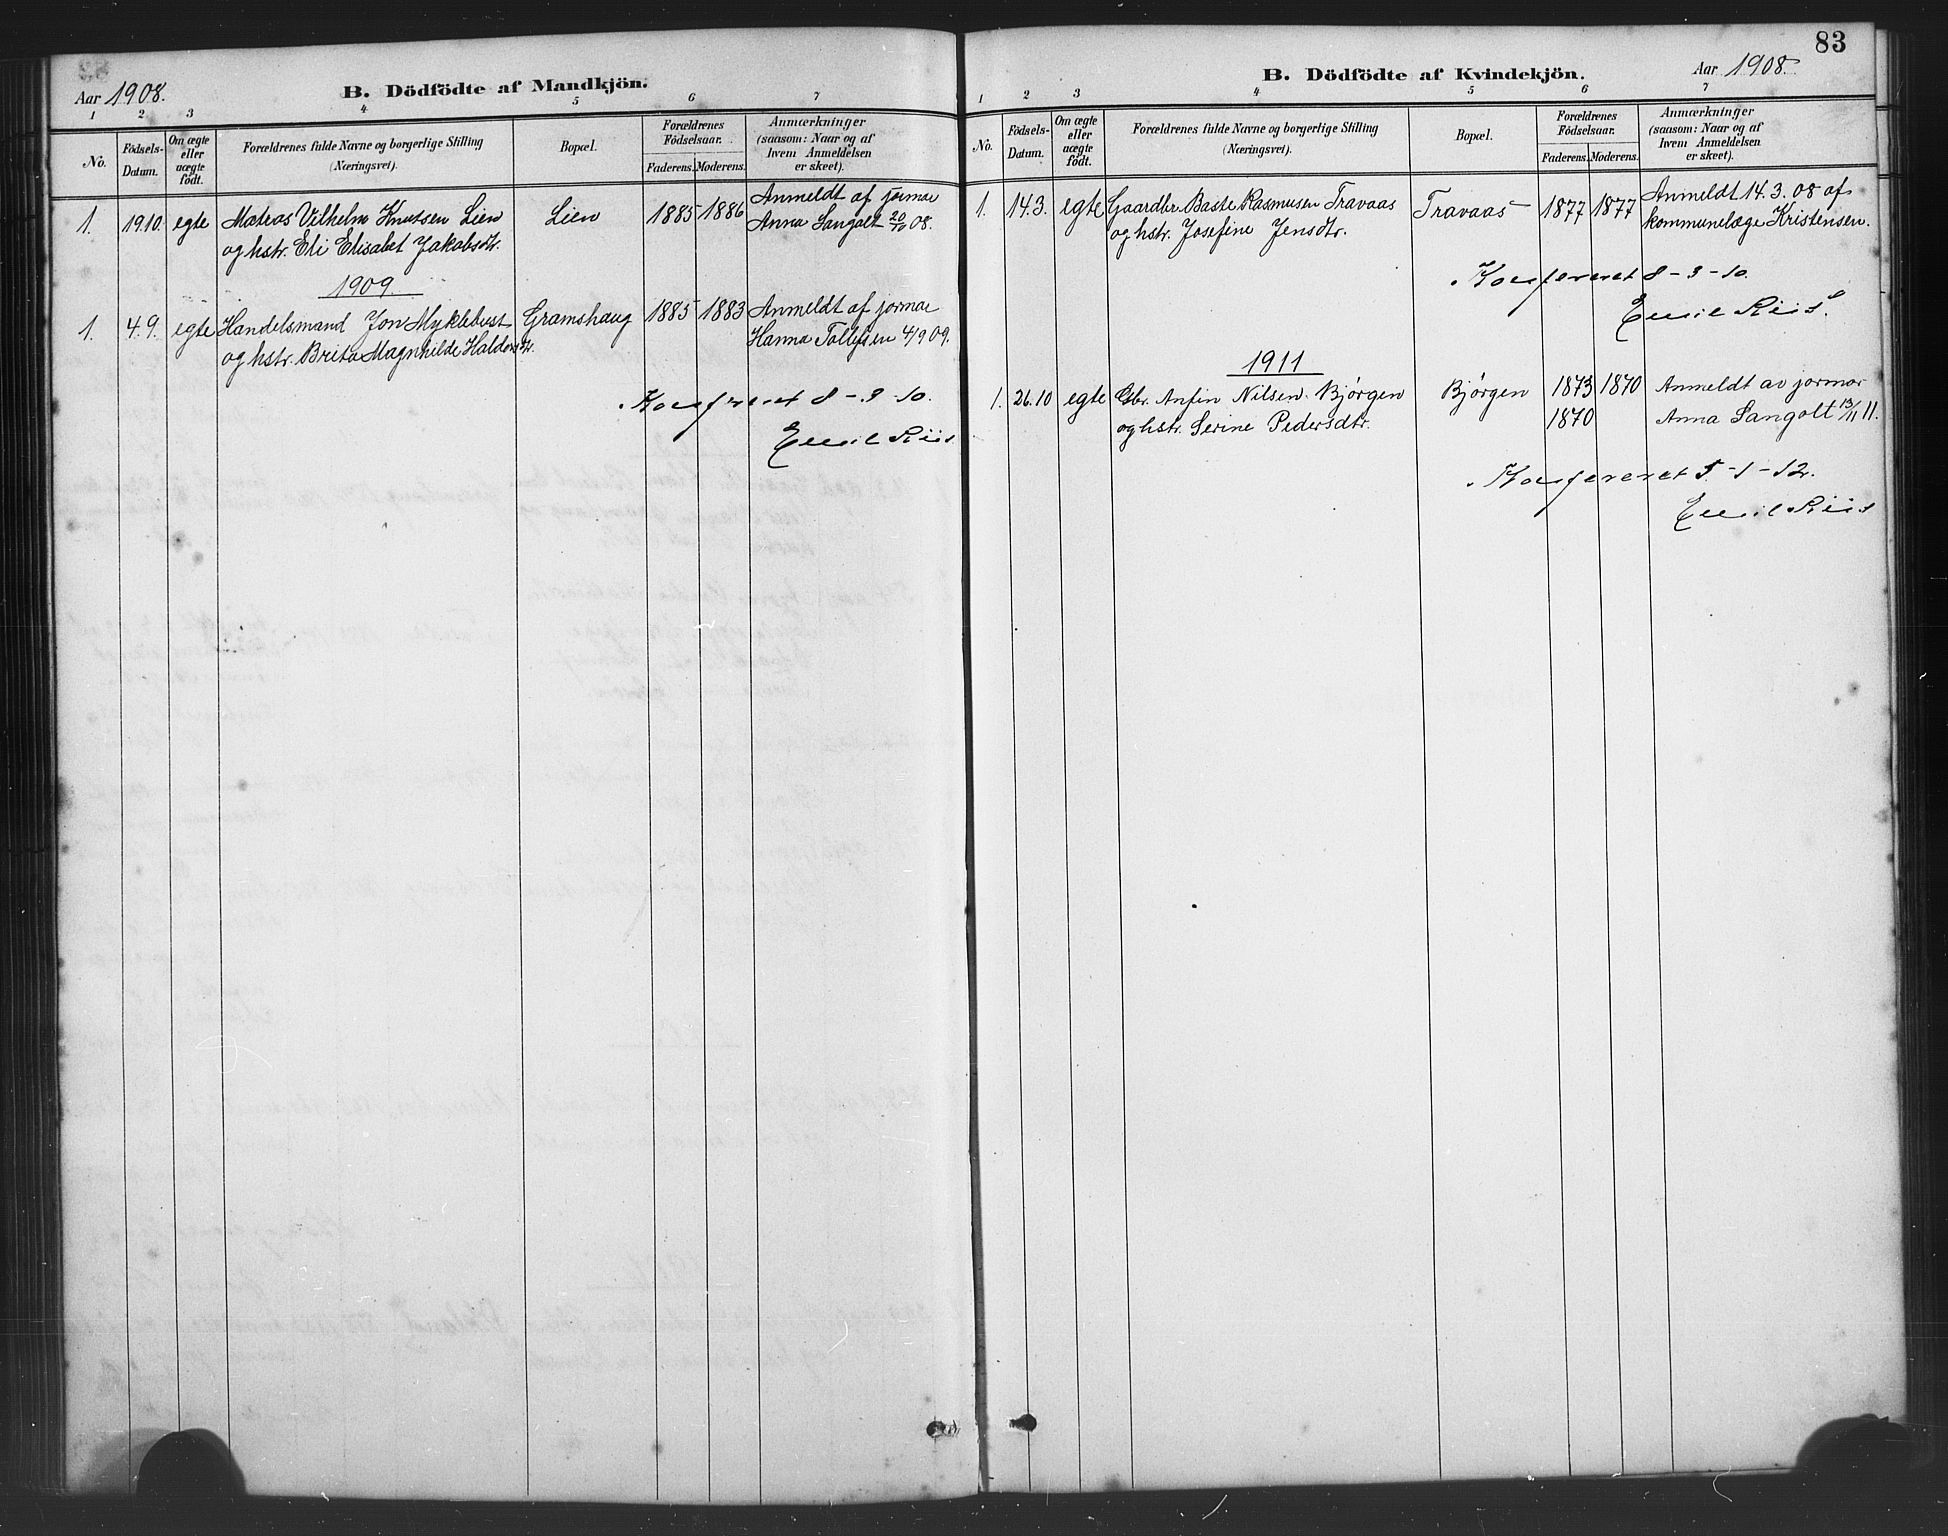 Aar 1908.
B. Dödfödte af Mandkjön.
1 2 3 4 5 6 7
No.
Födsels-Datum.
Om ægte eller uægte födt.
Forældrenes fulde Navne og borgerlige Stilling (Næringsvei).
Bopæl.
Forældrenes Födselsaar.
Faderens. Moderens.
Anmærkninger (saasom: Naar og af hvem Anmeldelsen er skeet).
1. 19.10. egte Mateas Vilhelm Knutsen Lien Lien 1885 1886 Anmeldt af jormor
og hstr. Eli Elisabet Jakobsdtr. Anna Langolt 20/10 08.
1909
1. 4.9. egte Handelsmand Jon Myklebust Gramshaug 1885 1883 Anmeldt af jormor
og hstr. Brita Magnhilde Haldorsdtr. Hanna Tollefsen 4/9 09.
Konfereret 8-3-10.
Emil Riis
83
Aar 1908.
B. Dödfödte af Kvindekjön.
1 2 3 4 5 6 7
No.
Födsels-Datum.
Om ægte eller uægte födt.
Forældrenes fulde Navne og borgerlige Stilling (Næringsvei).
Bopæl.
Forældrenes Födselsaar.
Faderens. Moderens.
Anmærkninger (saasom: Naar og af hvem Anmeldelsen er skeet).
1. 14.3. egte Gaardbr. Baste Rasmusen Travaas Travaas 1877 1877 Anmeldt 14.3.08 af
og hstr. Josefine Jensdtr. kommunelæge Kristensen.
Konfereret 8-3-10.
Emil Riis.
1911
1. 26.10 egte Gbr. Anfin Nilsen Bjørgen Bjørgen 1873 1870 Anmeldt av jormor
og hstr. Serine Pedersdtr. 1870 Anna Langolt 13/11 11.
Konfereret 5-1-12.
Emil Riis